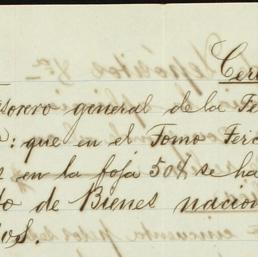 Cer
sorero general de la Te
: que en el Tomo Terc
s en la foja 508 se ha
to de Bienes nacion
os.